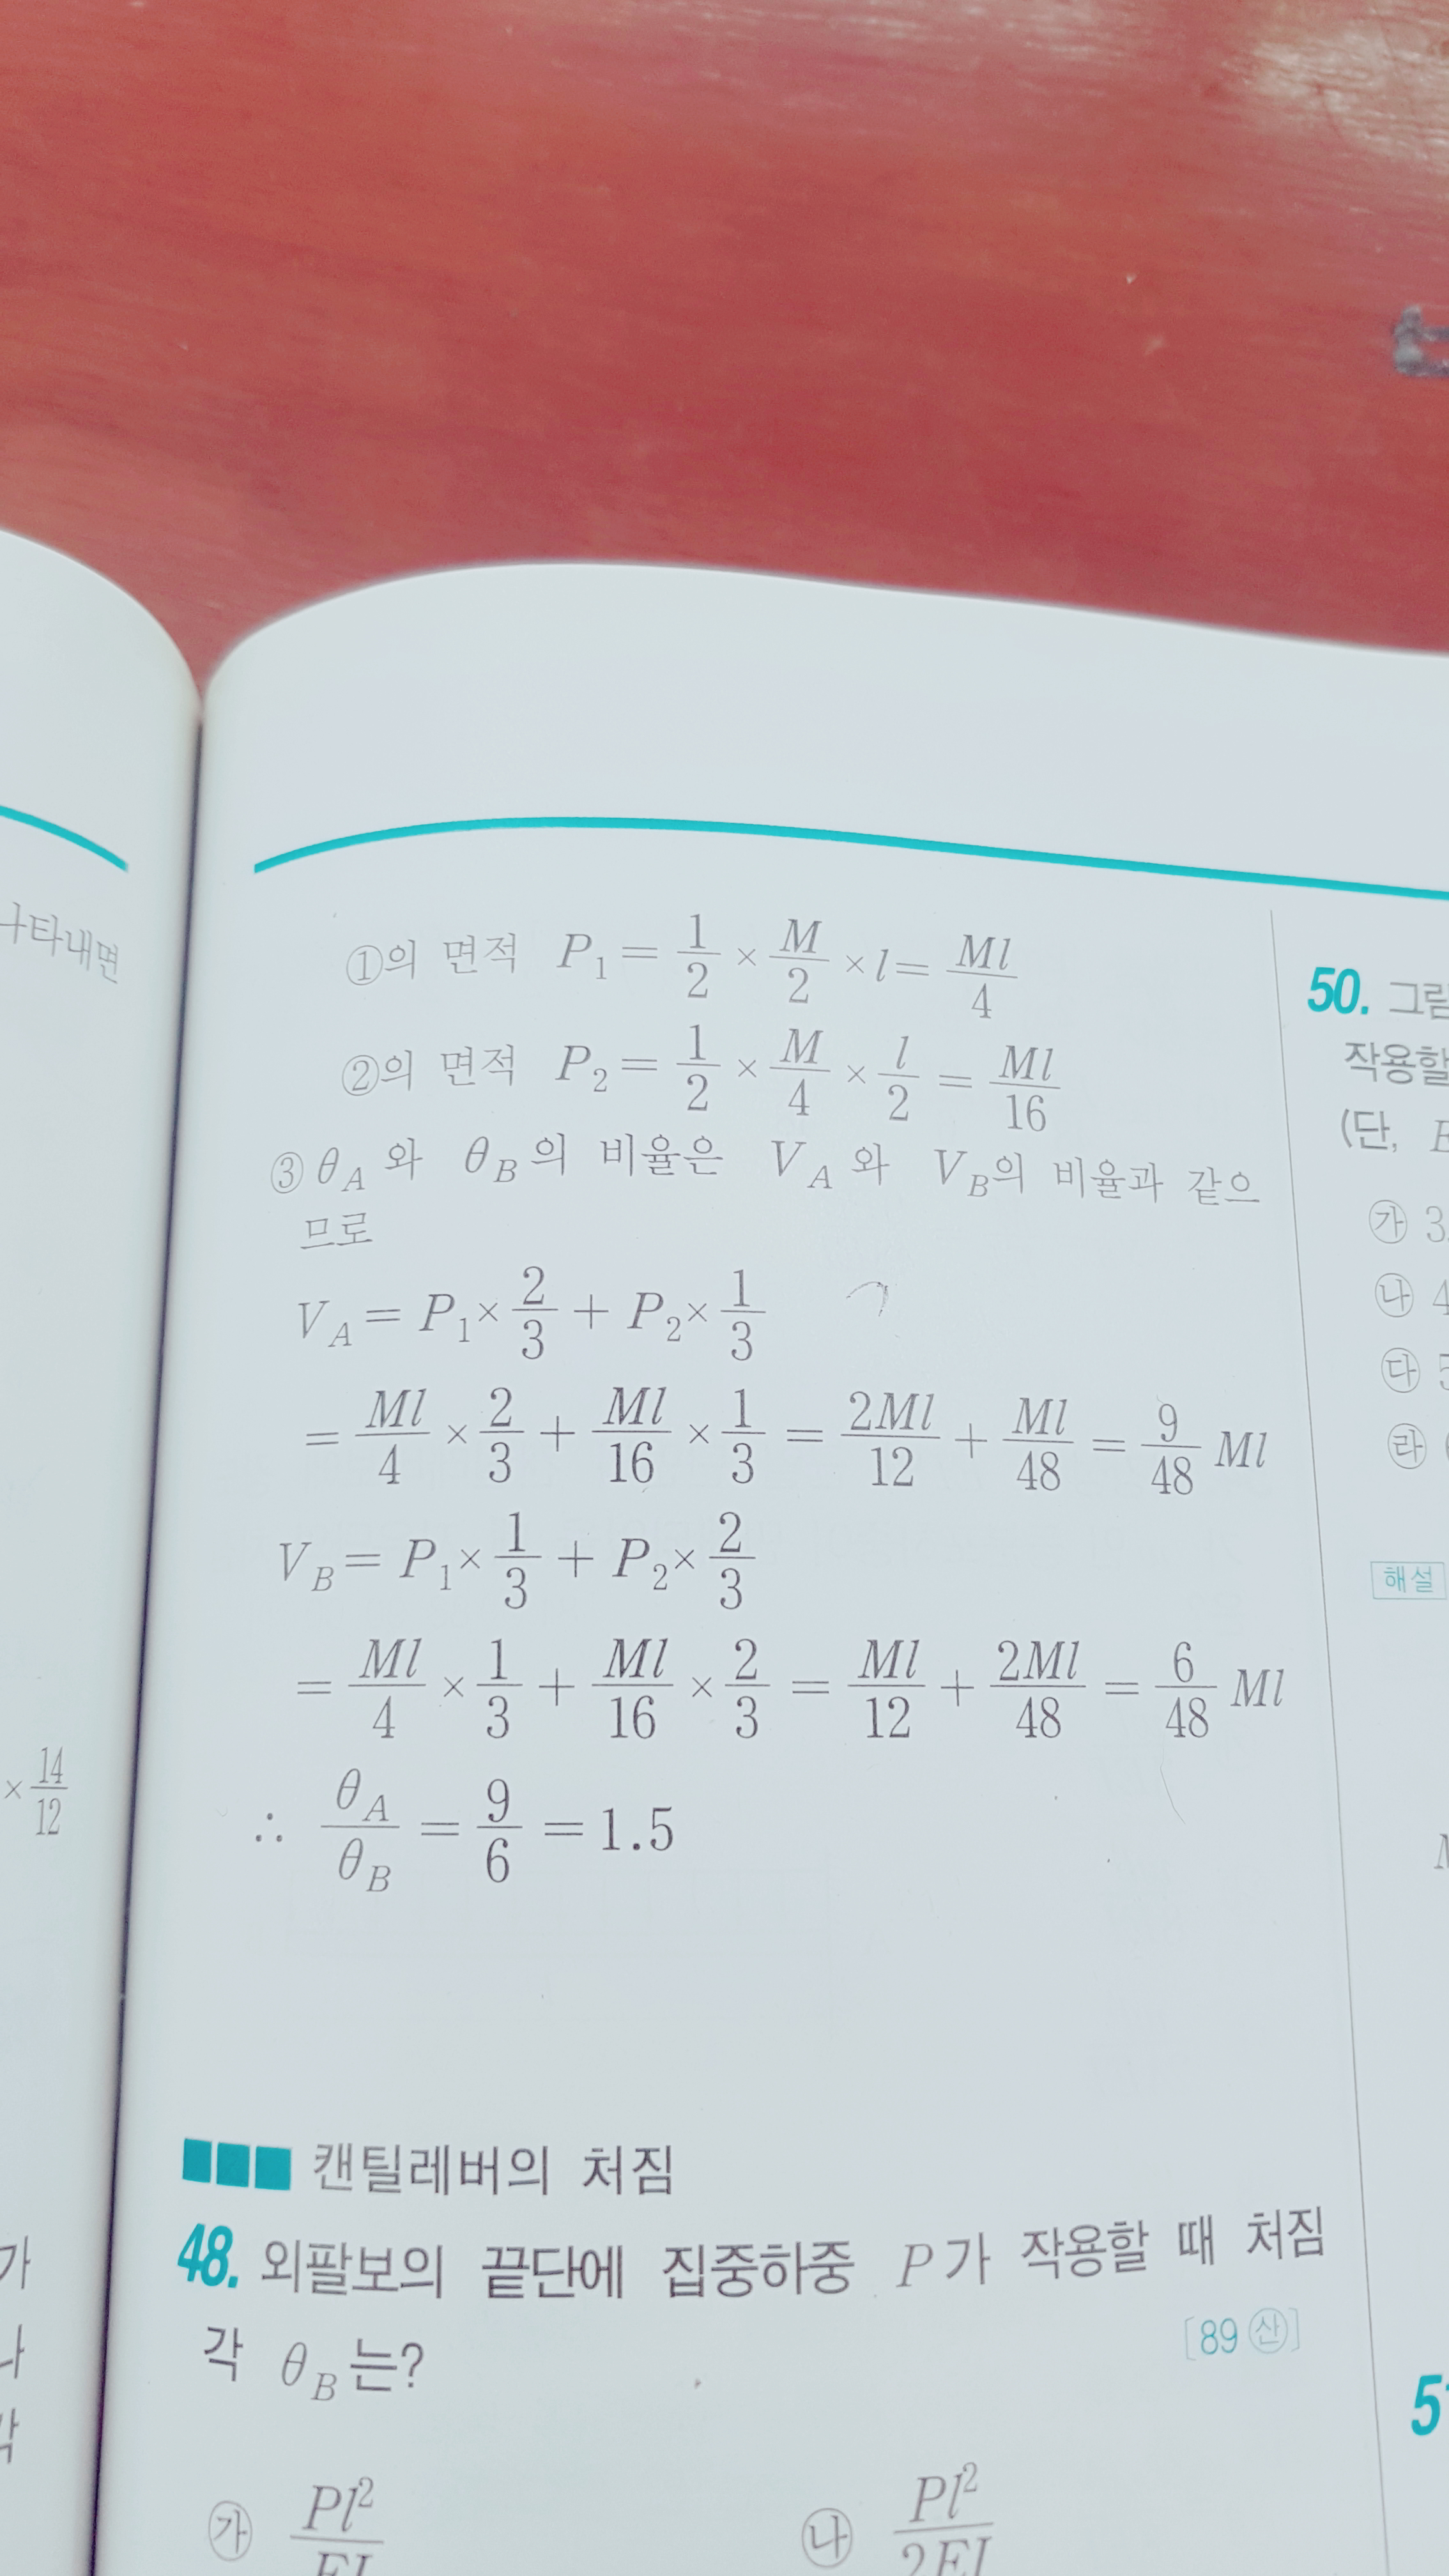 나타내면
× 14/12
가
나
①의 면적 P₁ = 1/2 × M/2 × l = Ml/4
②의 면적 P₂ = 1/2 × M/4 × l/2 = Ml/16
③ θ_A 와 θ_B의 비율은 V_A 와 V_B의 비율과 같으
므로
V_A = P₁× 2/3 + P₂× 1/3
= Ml/4 × 2/3 + Ml/16 × 1/3 = 2Ml/12 + Ml/48 = 9/48 Ml
V_B = P₁× 1/3 + P₂× 2/3
= Ml/4 × 1/3 + Ml/16 × 2/3 = Ml/12 + 2Ml/48 = 6/48 Ml
∴ θ_A/θ_B = 9/6 = 1.5
■■■ 캔틸레버의 처짐
48. 외팔보의 끝단에 집중하중 P가 작용할 때 처짐
각 θ_B는? [89 ㉮산]
㉮ Pl²/EI ㉯ Pl²/2EI
50. 그림
작용할
(단, E
㉮ 3
㉯ 4
㉰ 5
㉱
해설